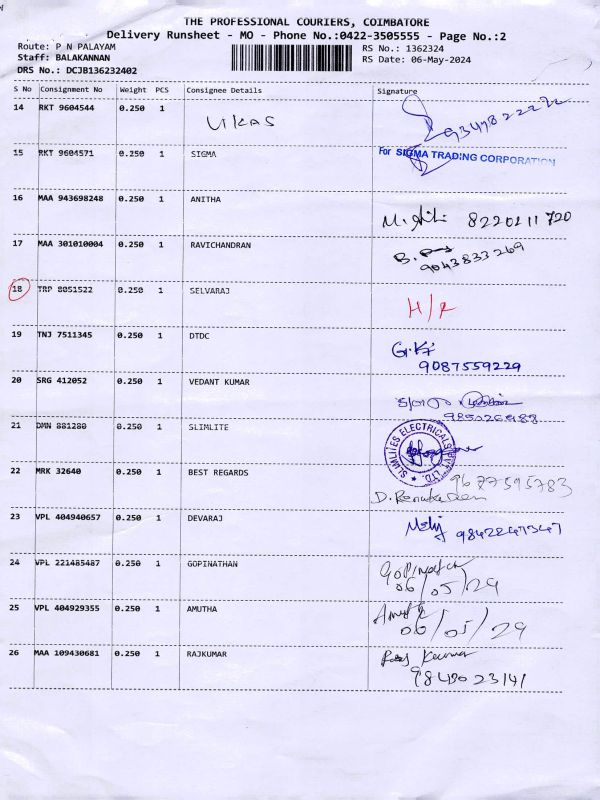 THE PROFESSIONAL COURIERS, COIMBATORE
Delivery Runsheet - MO - Phone No.:0422-3505555 - Page No.:2
Route: P N PALAYAM
RS No.: 1362324
Staff: BALAKANNAN
RS Date: 06-May-2024
DRS No.: DCJB136232402
S No Consignment No Weight PCS Consignee Details Signature
14 RKT 9604544 0.250 1 UKAS
15 RKT 9604571 0.250 1 SIGMA For SIGMA TRADING CORPORATION
16 MAA 943698248 0.250 1 ANITHA 8220211720
17 MAA 301010004 0.250 1 RAVICHANDRAN B. 9043833269
18 TRP 8051522 0.250 1 SELVARAJ H/R
19 TNJ 7511345 0.250 1 DTDC 9087559229
20 SRG 412052 0.250 1 VEDANT KUMAR
21 DMN 881280 0.250 1 SLIMLITE SLIMLITES ELECTRICALS PVT. LTD.
22 MRK 32640 0.250 1 BEST REGARDS 9677595783
23 VPL 404940657 0.250 1 DEVARAJ
24 VPL 221485487 0.250 1 GOPINATHAN Gopinath
06/05/24
25 VPL 404929355 0.250 1 AMUTHA Amutha
06/05/24
26 MAA 109430681 0.250 1 RAJKUMAR Raj Kumar